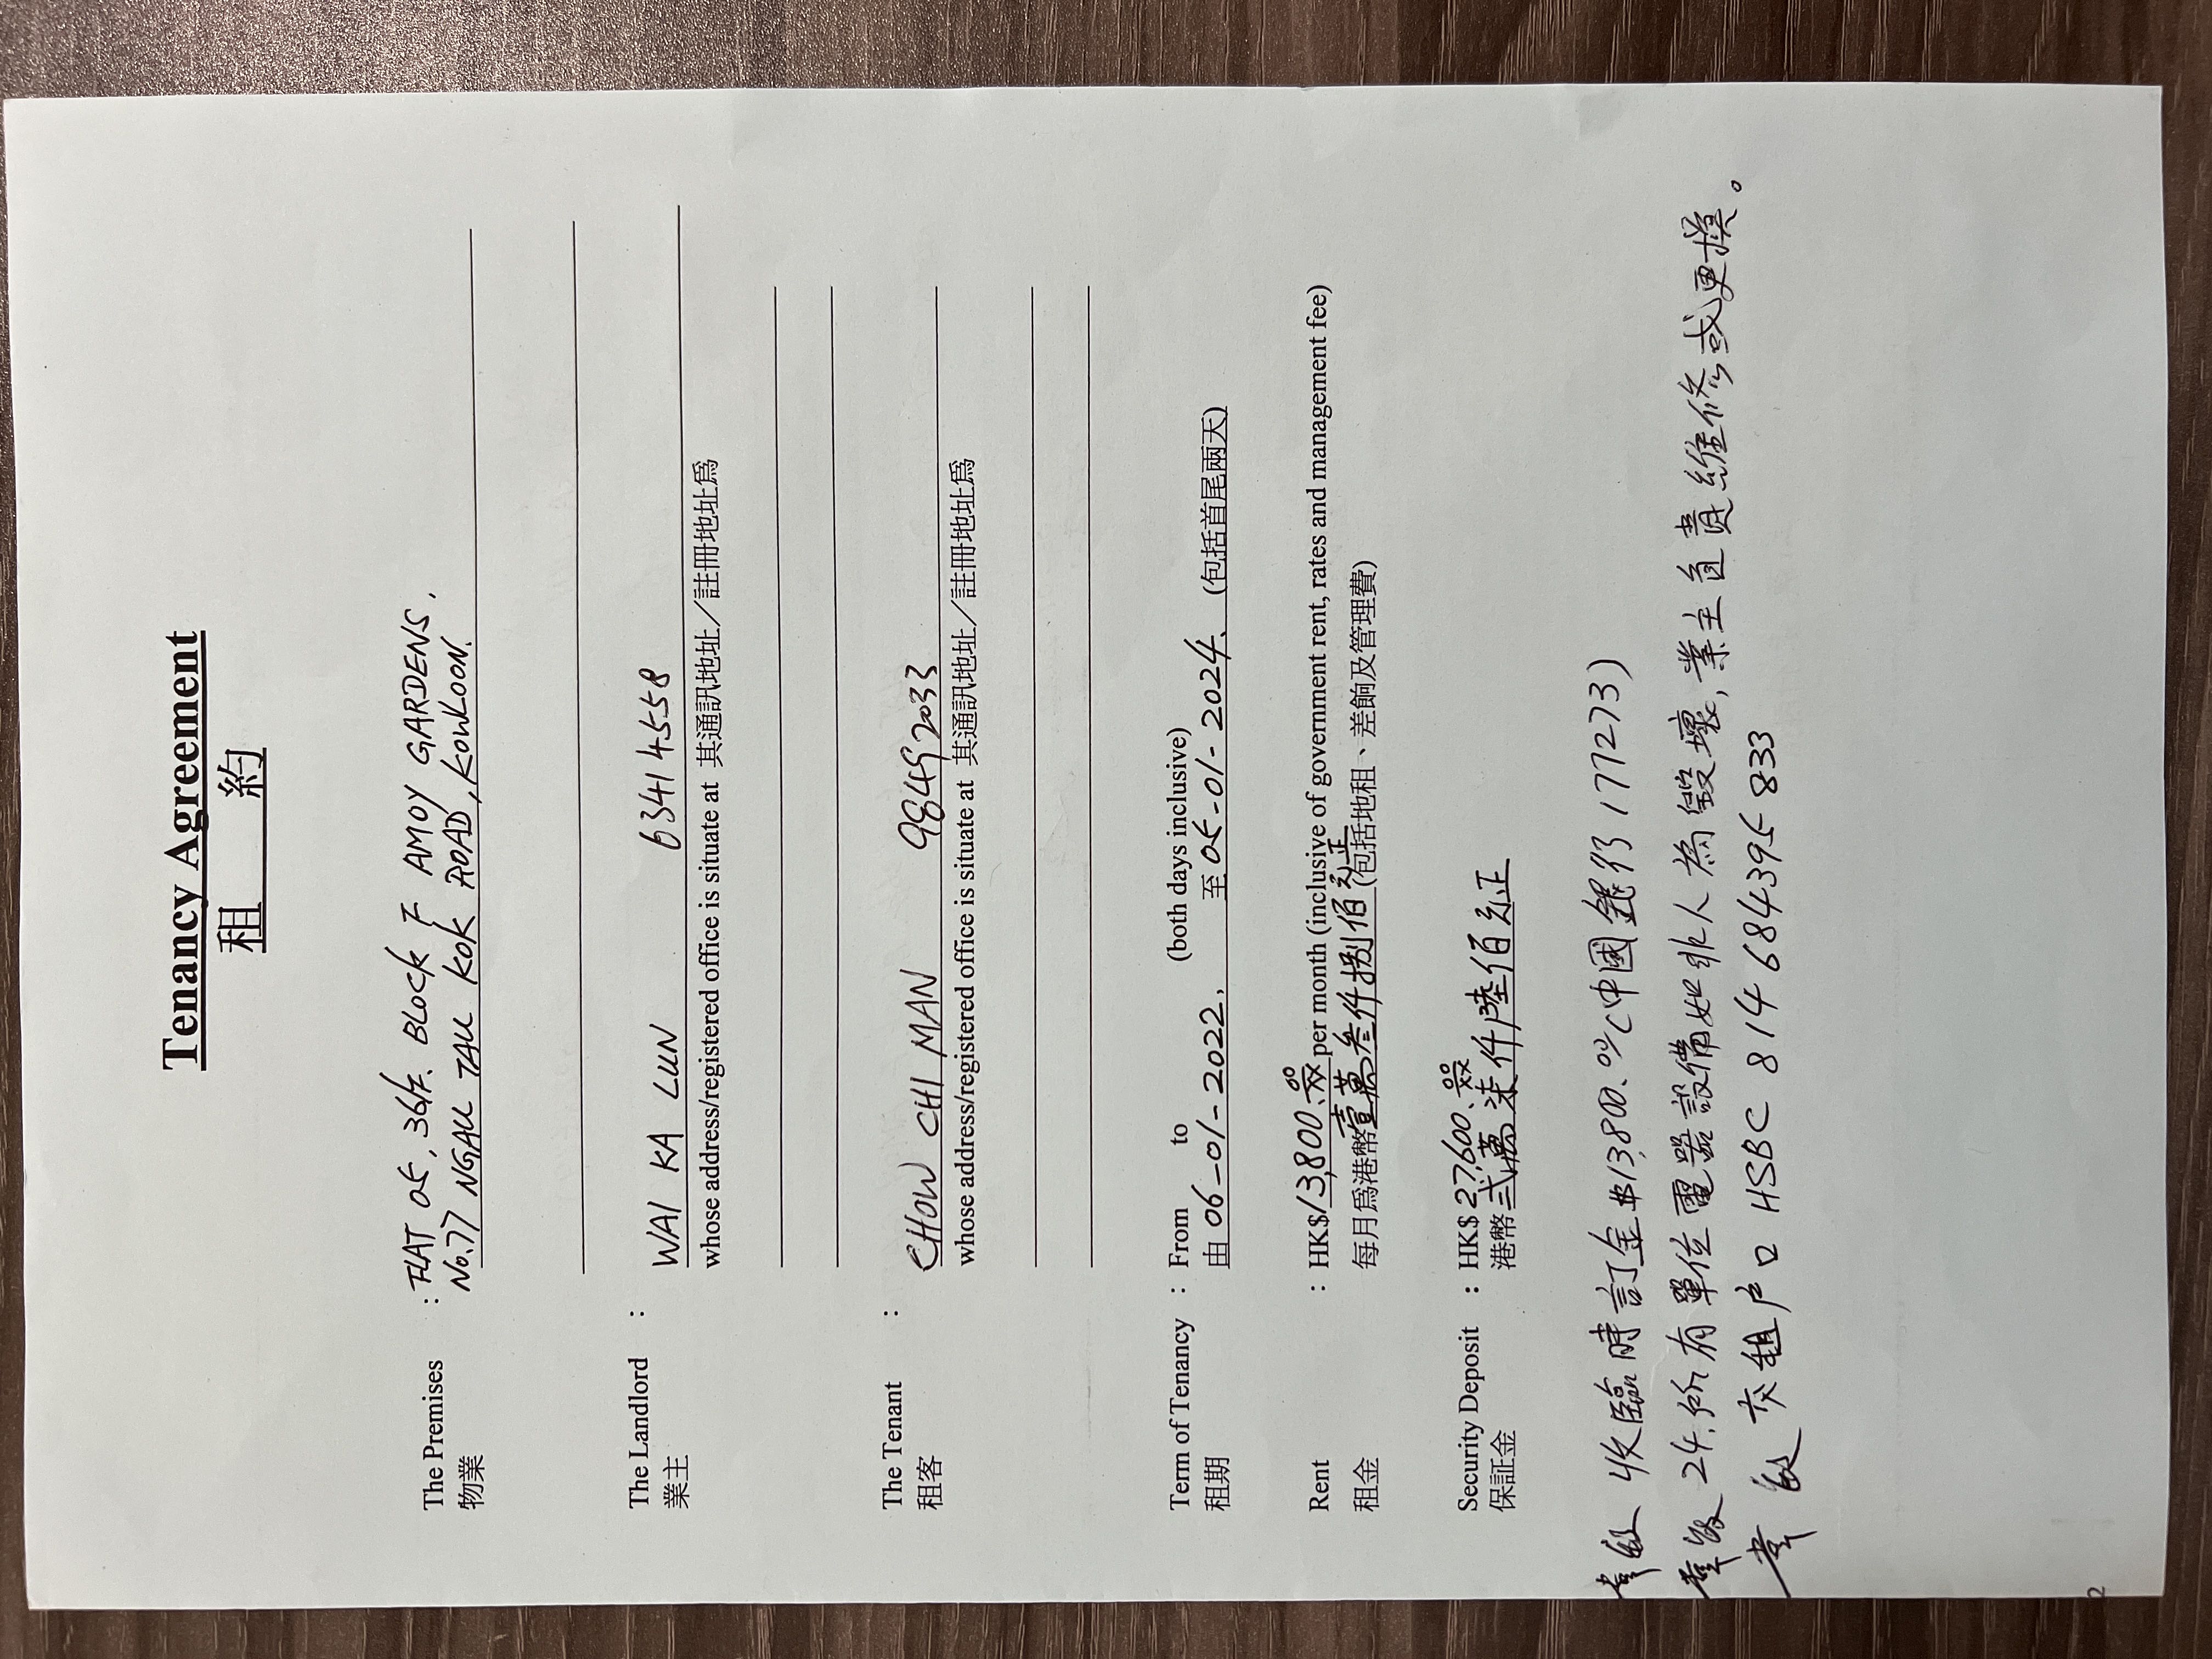 Tenancy Agreement
租 約
The Premises : FLAT 05, 36/F. BLOCK F AMOY GARDENS,
物業 No.77 NGAU TAU KOK ROAD, KOWLOON.
The Landlord : WAI KA LUN 6341 4558
業主 whose address/registered office is situate at 其通訊地址／註冊地址爲
The Tenant : CHOW CHI MAN 98492033
租客 whose address/registered office is situate at 其通訊地址／註冊地址爲
Term of Tenancy : From to (both days inclusive)
租期 由 06-01-2022. 至 05-01-2024. (包括首尾兩天)
Rent : HK$13,800.00 per month (inclusive of government rent, rates and management fee)
租金 每月爲港幣壹萬叁仟捌佰元正 (包括地租、差餉及管理費)
Security Deposit : HK$27,600.00
保証金 港幣弍萬柒仟陸佰元正
收臨時訂金$13,800.00 (中國銀行 177273)
24.所有單位電器設備如非人為毀壞,業主負責維修或更換。
交租戶口 HSBC 814 684395 833
2